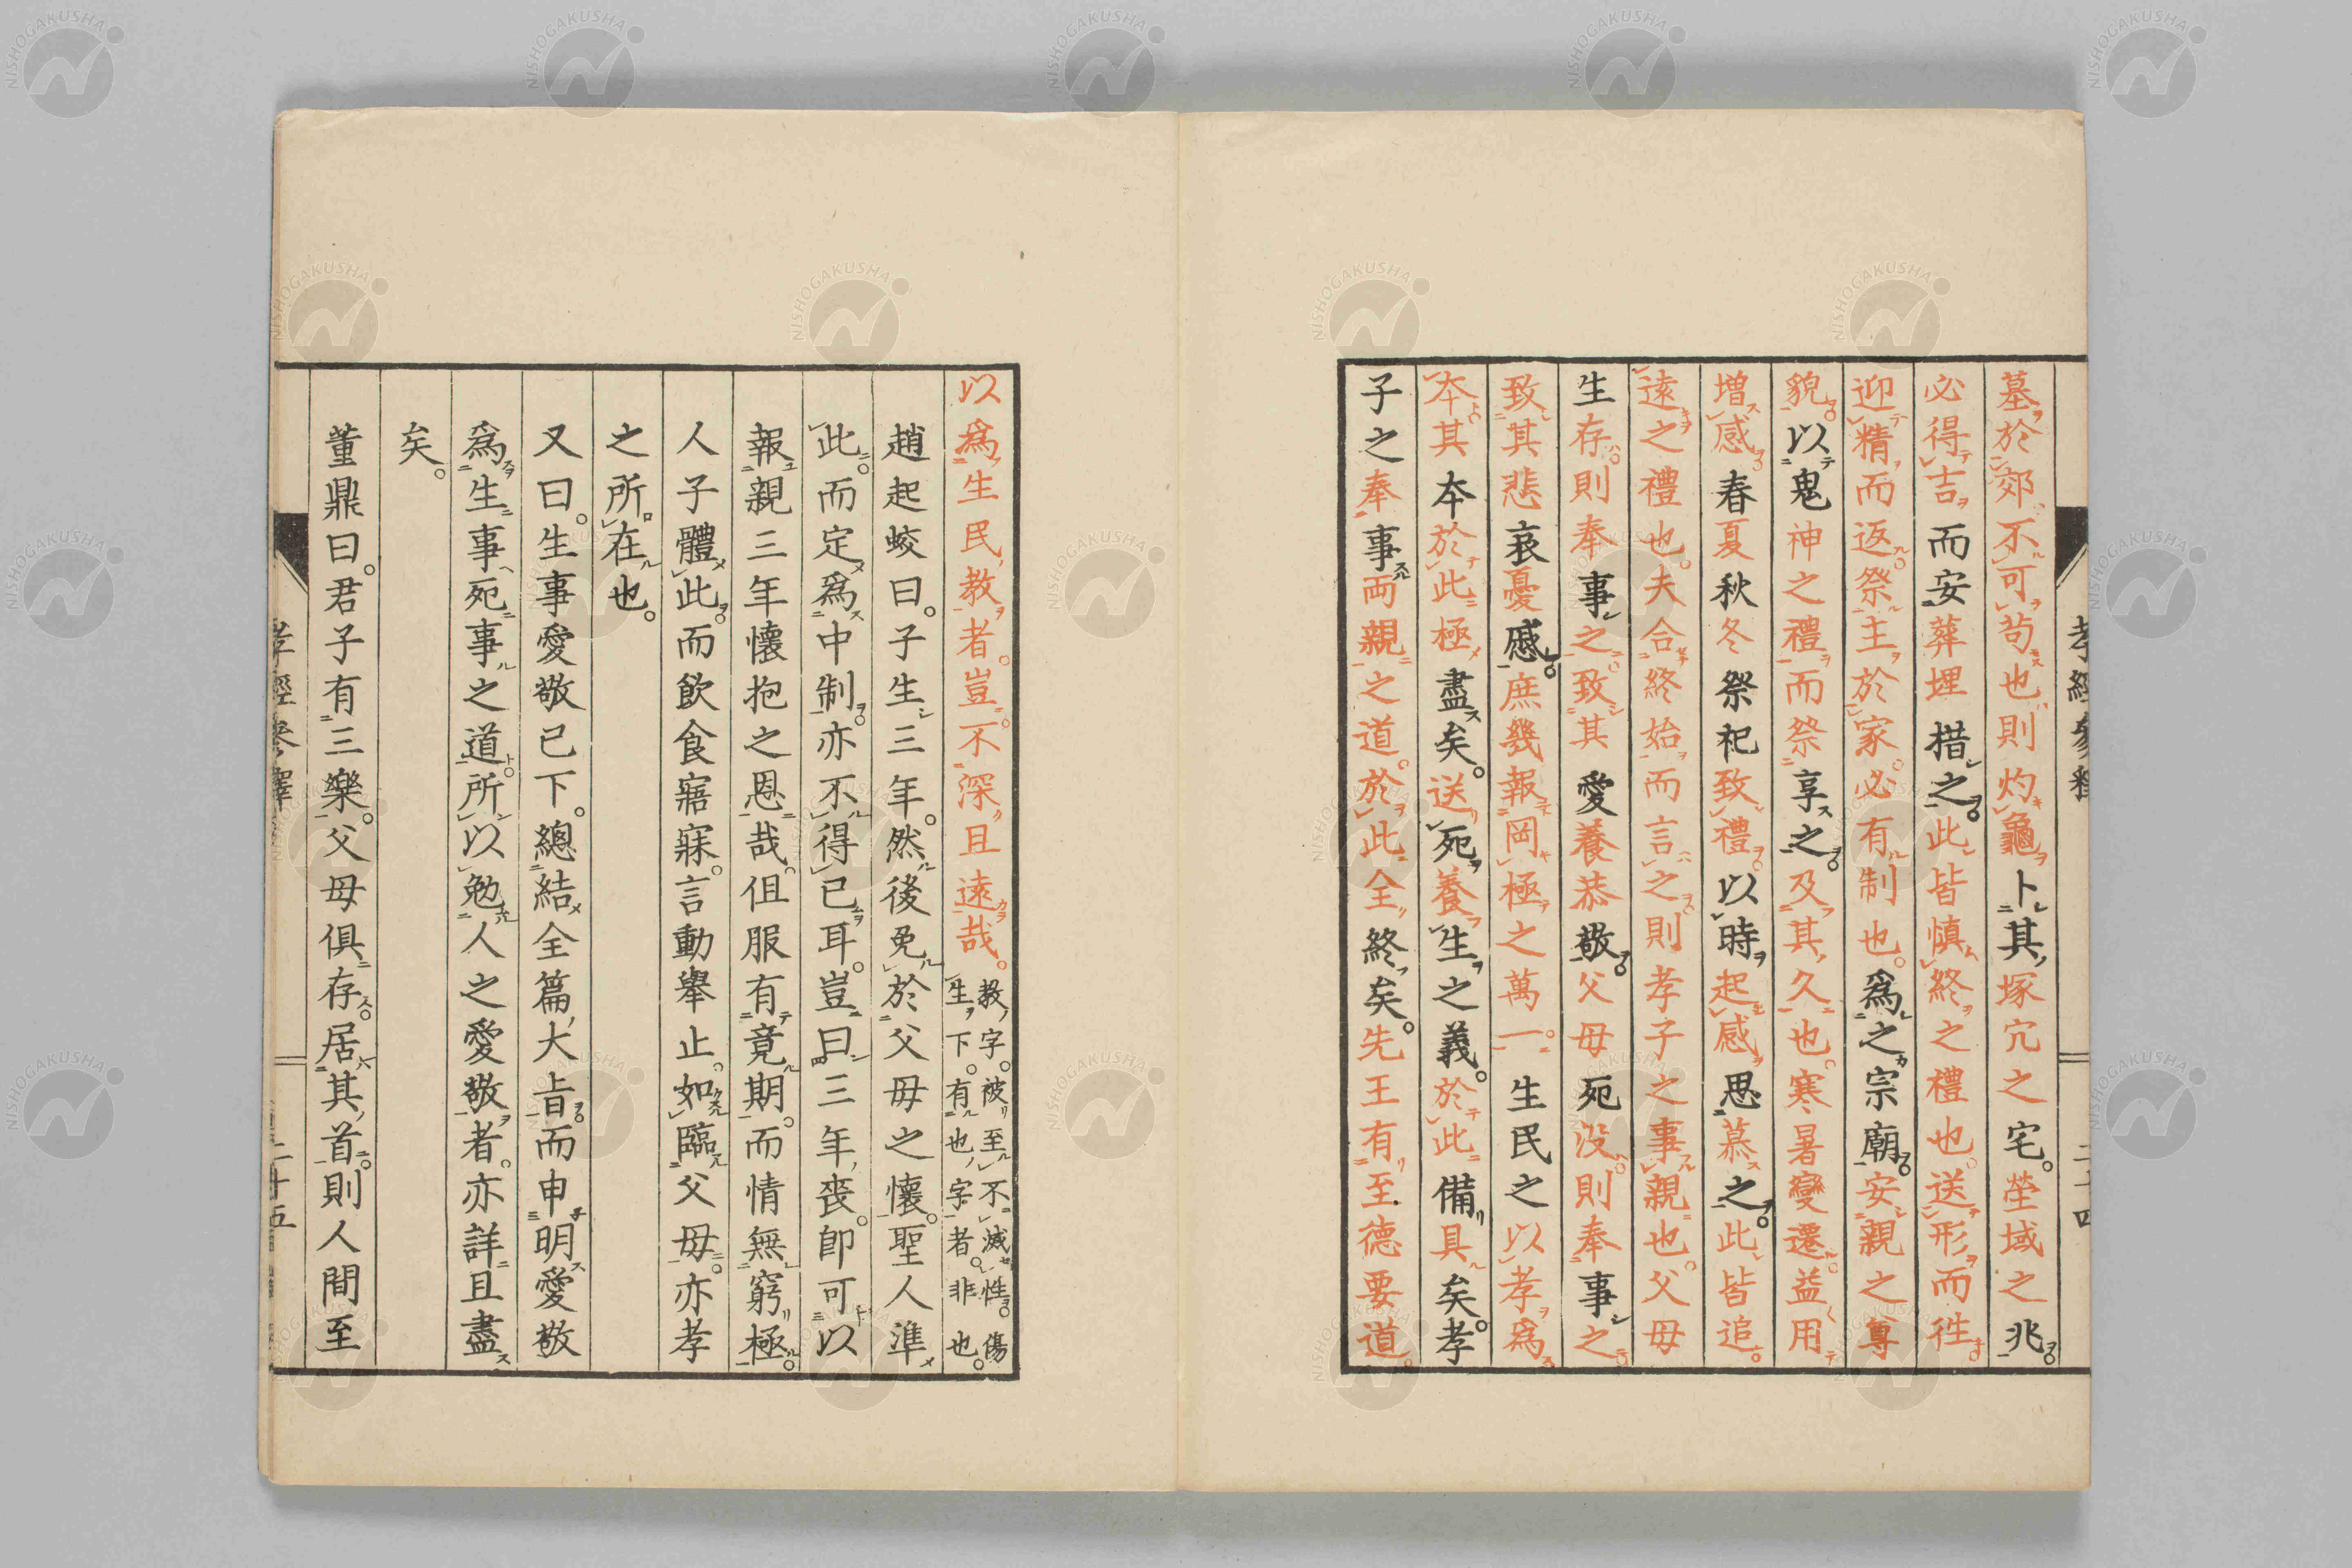 孝經參釋
二十四
墓於郊不可苟也則灼龜卜其塚穴之宅塋域之兆
必得吉而安葬埋措之此皆慎終之禮也送形而往
迎精而返祭主於家必有制也爲之宗廟安親之尊
貌以鬼神之禮而祭享之及其久也寒暑變遷益用
增感春夏秋冬祭祀致禮以時起感思慕之此皆追
遠之禮也夫合終始而言之則孝子之事親也父母
生存則奉事之致其愛養恭敬父母死没則奉事之
致其悲哀憂慼庶幾報罔極之萬一生民之以孝爲
本其本於此極盡矣送死養生之義於此備具矣孝
子之奉事兩親之道於此全終矣先王有至德要道
以爲生民教者豈不深且遠哉。教字被至不滅性傷生下有也字者非也
趙起蛟曰子生三年然後免於父母之懷聖人準
此而定爲中制亦不得已耳豈曰三年喪即可以
報親三年懷抱之恩哉但服有竟期而情無窮極
人子體此而飲食寤寐言動舉止如臨父母亦孝
之所在也
又曰生事愛敬已下總結全篇大旨而申明愛敬
爲生事死事之道所以勉人之愛敬者亦詳且盡
矣
董鼎曰君子有三樂父母俱存居其首則人間至
孝經參釋
二十五
NISHOGAKUSHA